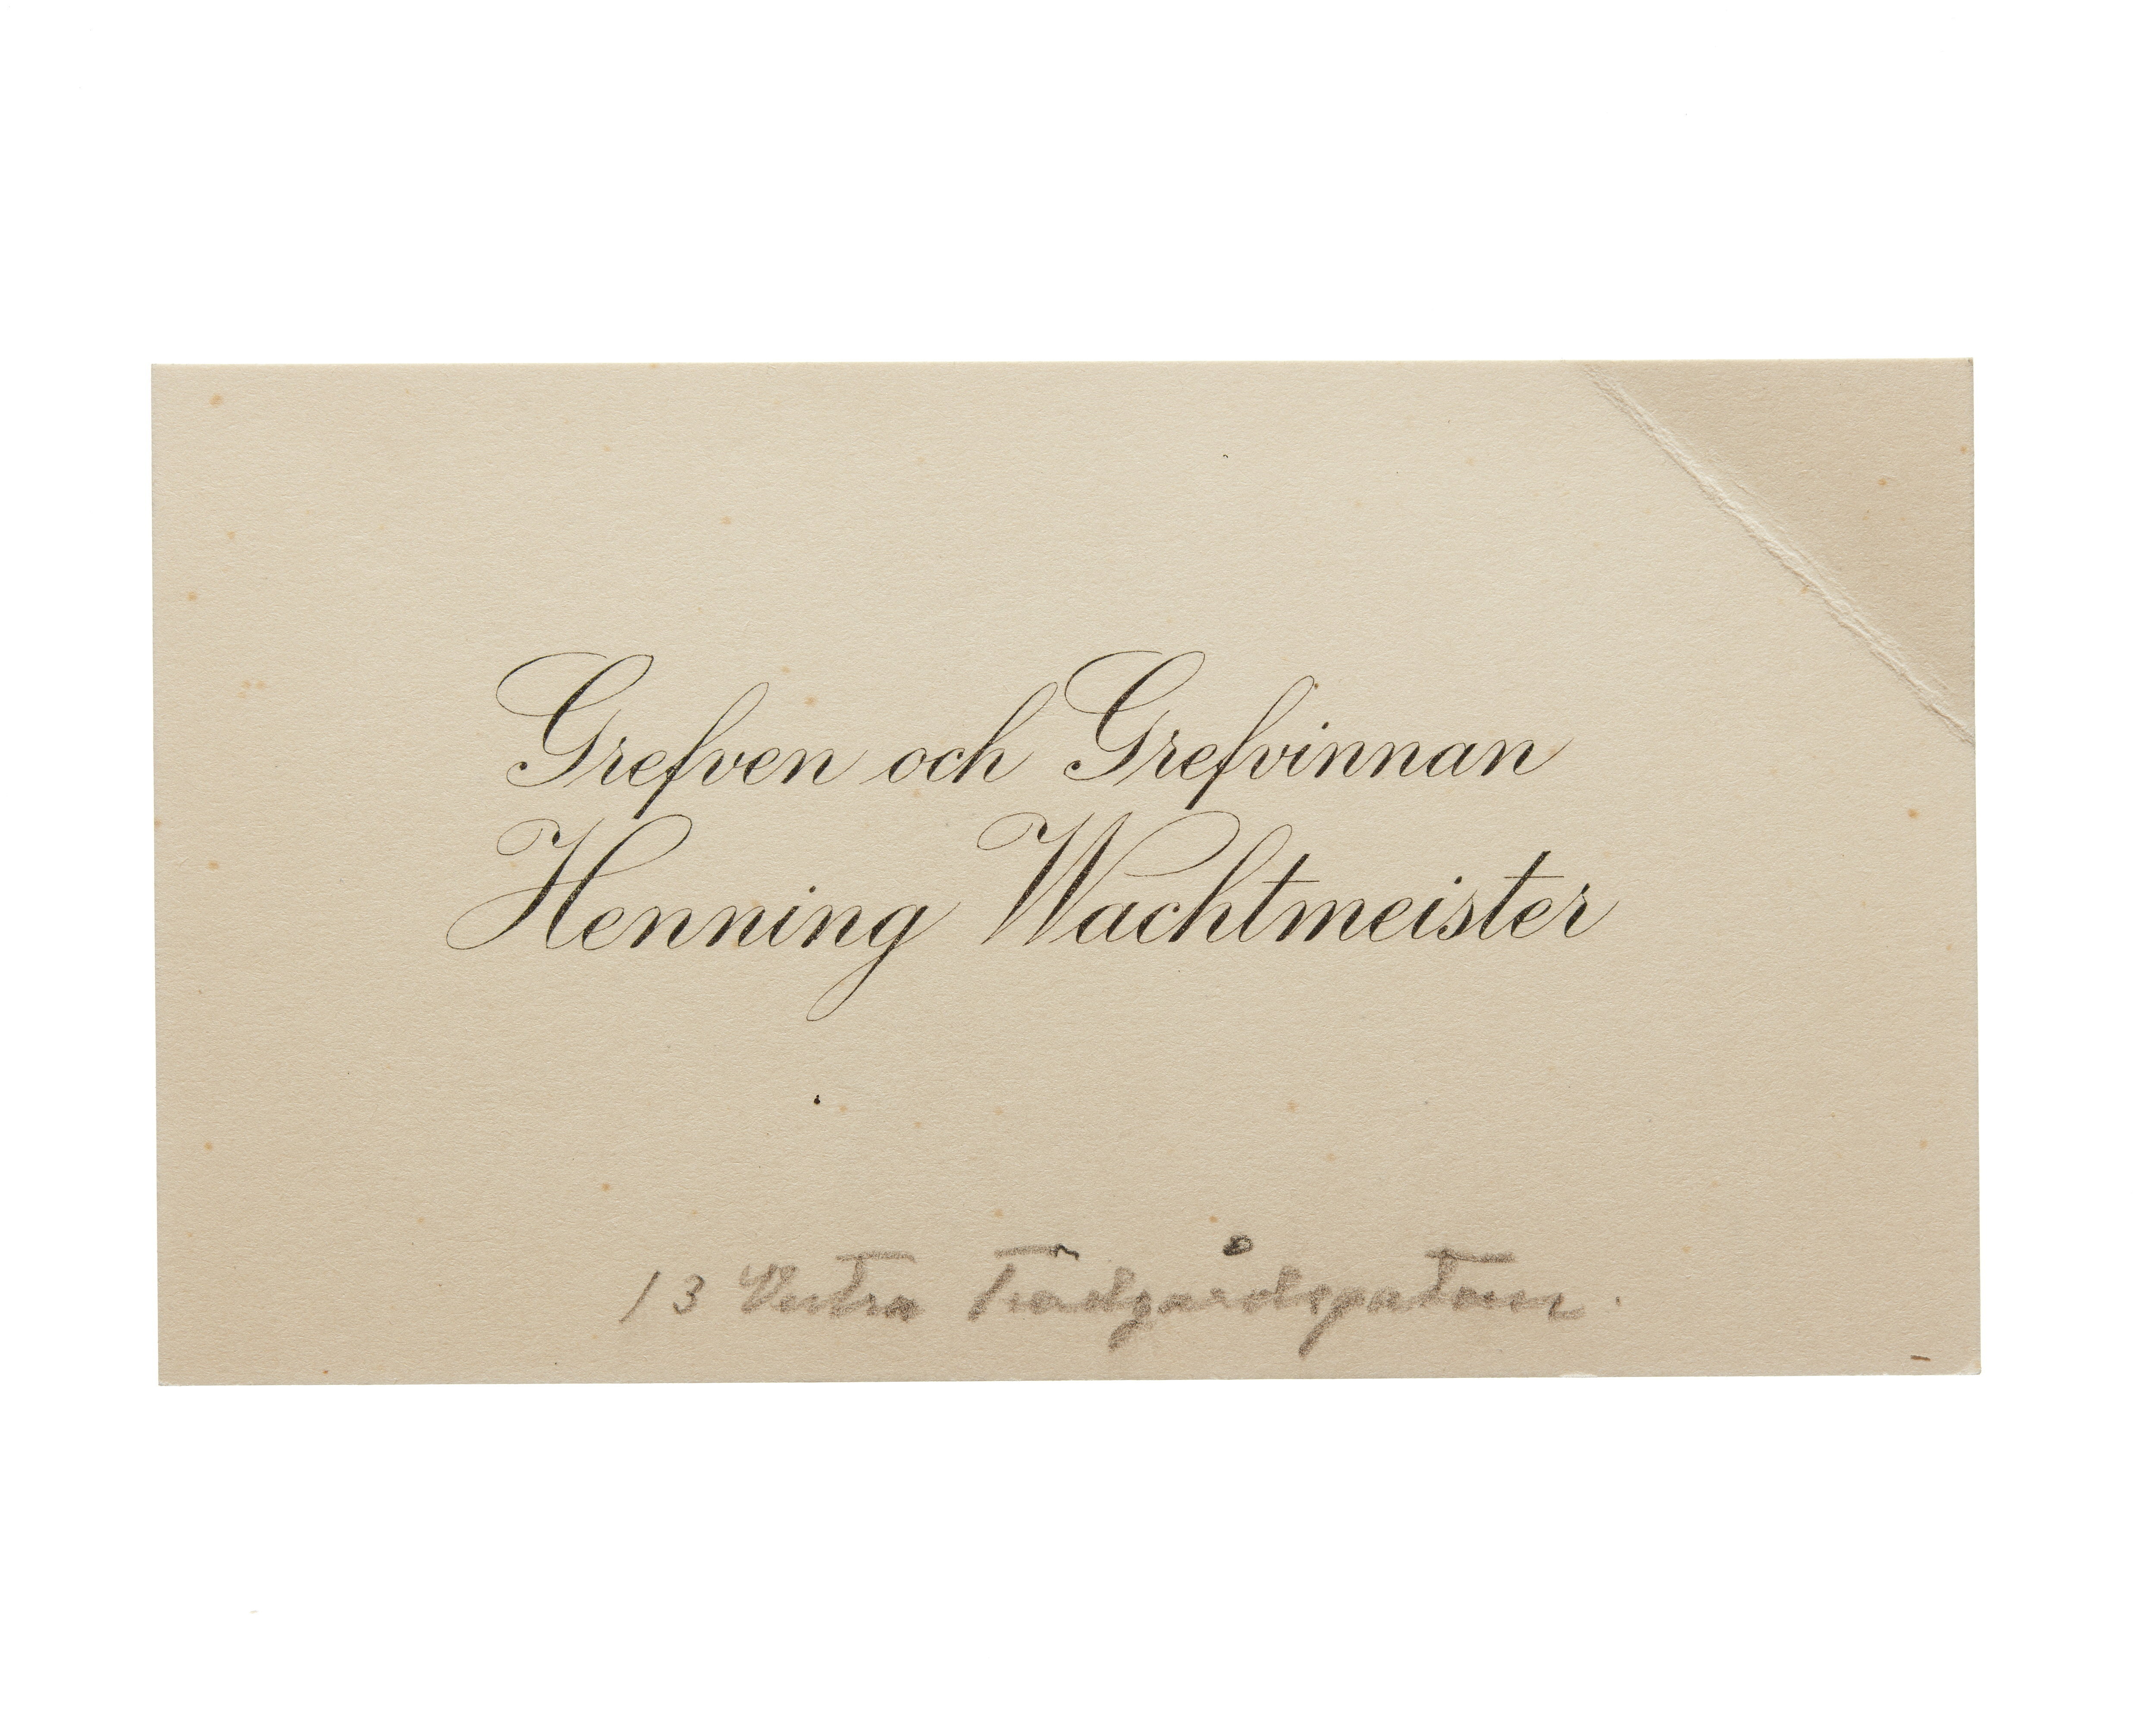 Grefven och Grefvinnan
Henning Wachtmeister
13 Vestra Trädgårdsgatan.